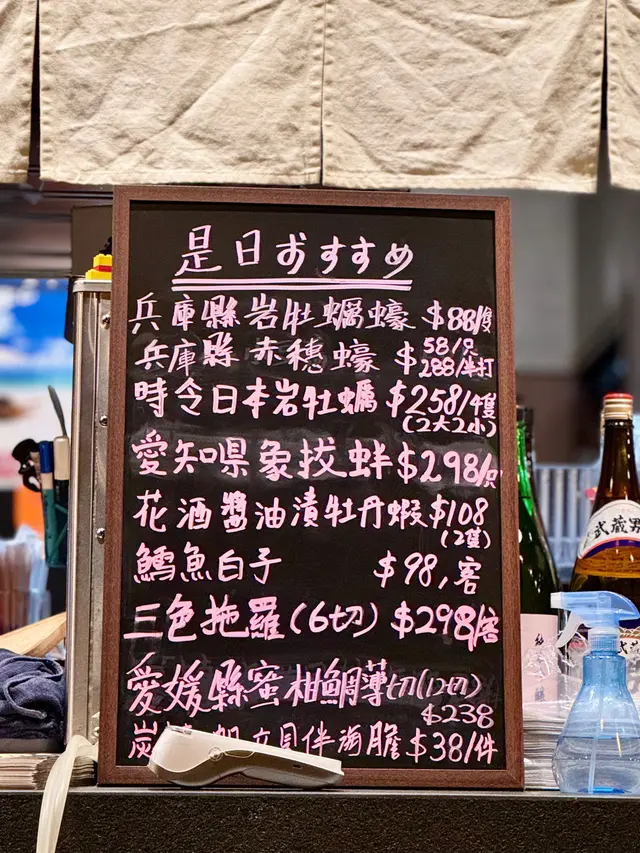 是日おすすめ
兵庫縣岩牡蠣蠔 $88/隻
兵庫縣赤穗蠔 $58/只
288/半打
時令日本岩牡蠣 $258/4隻
(2大2小)
愛知県象拔蚌 $298/只
花酒醬油漬牡丹蝦 $108
(2隻)
鱈魚白子 $98,客
三色拖羅(6切) $298/客
愛媛縣蜜柑鯛薄切(12切)
$238
炭 立貝伴海膽 $38/件
武蔵男